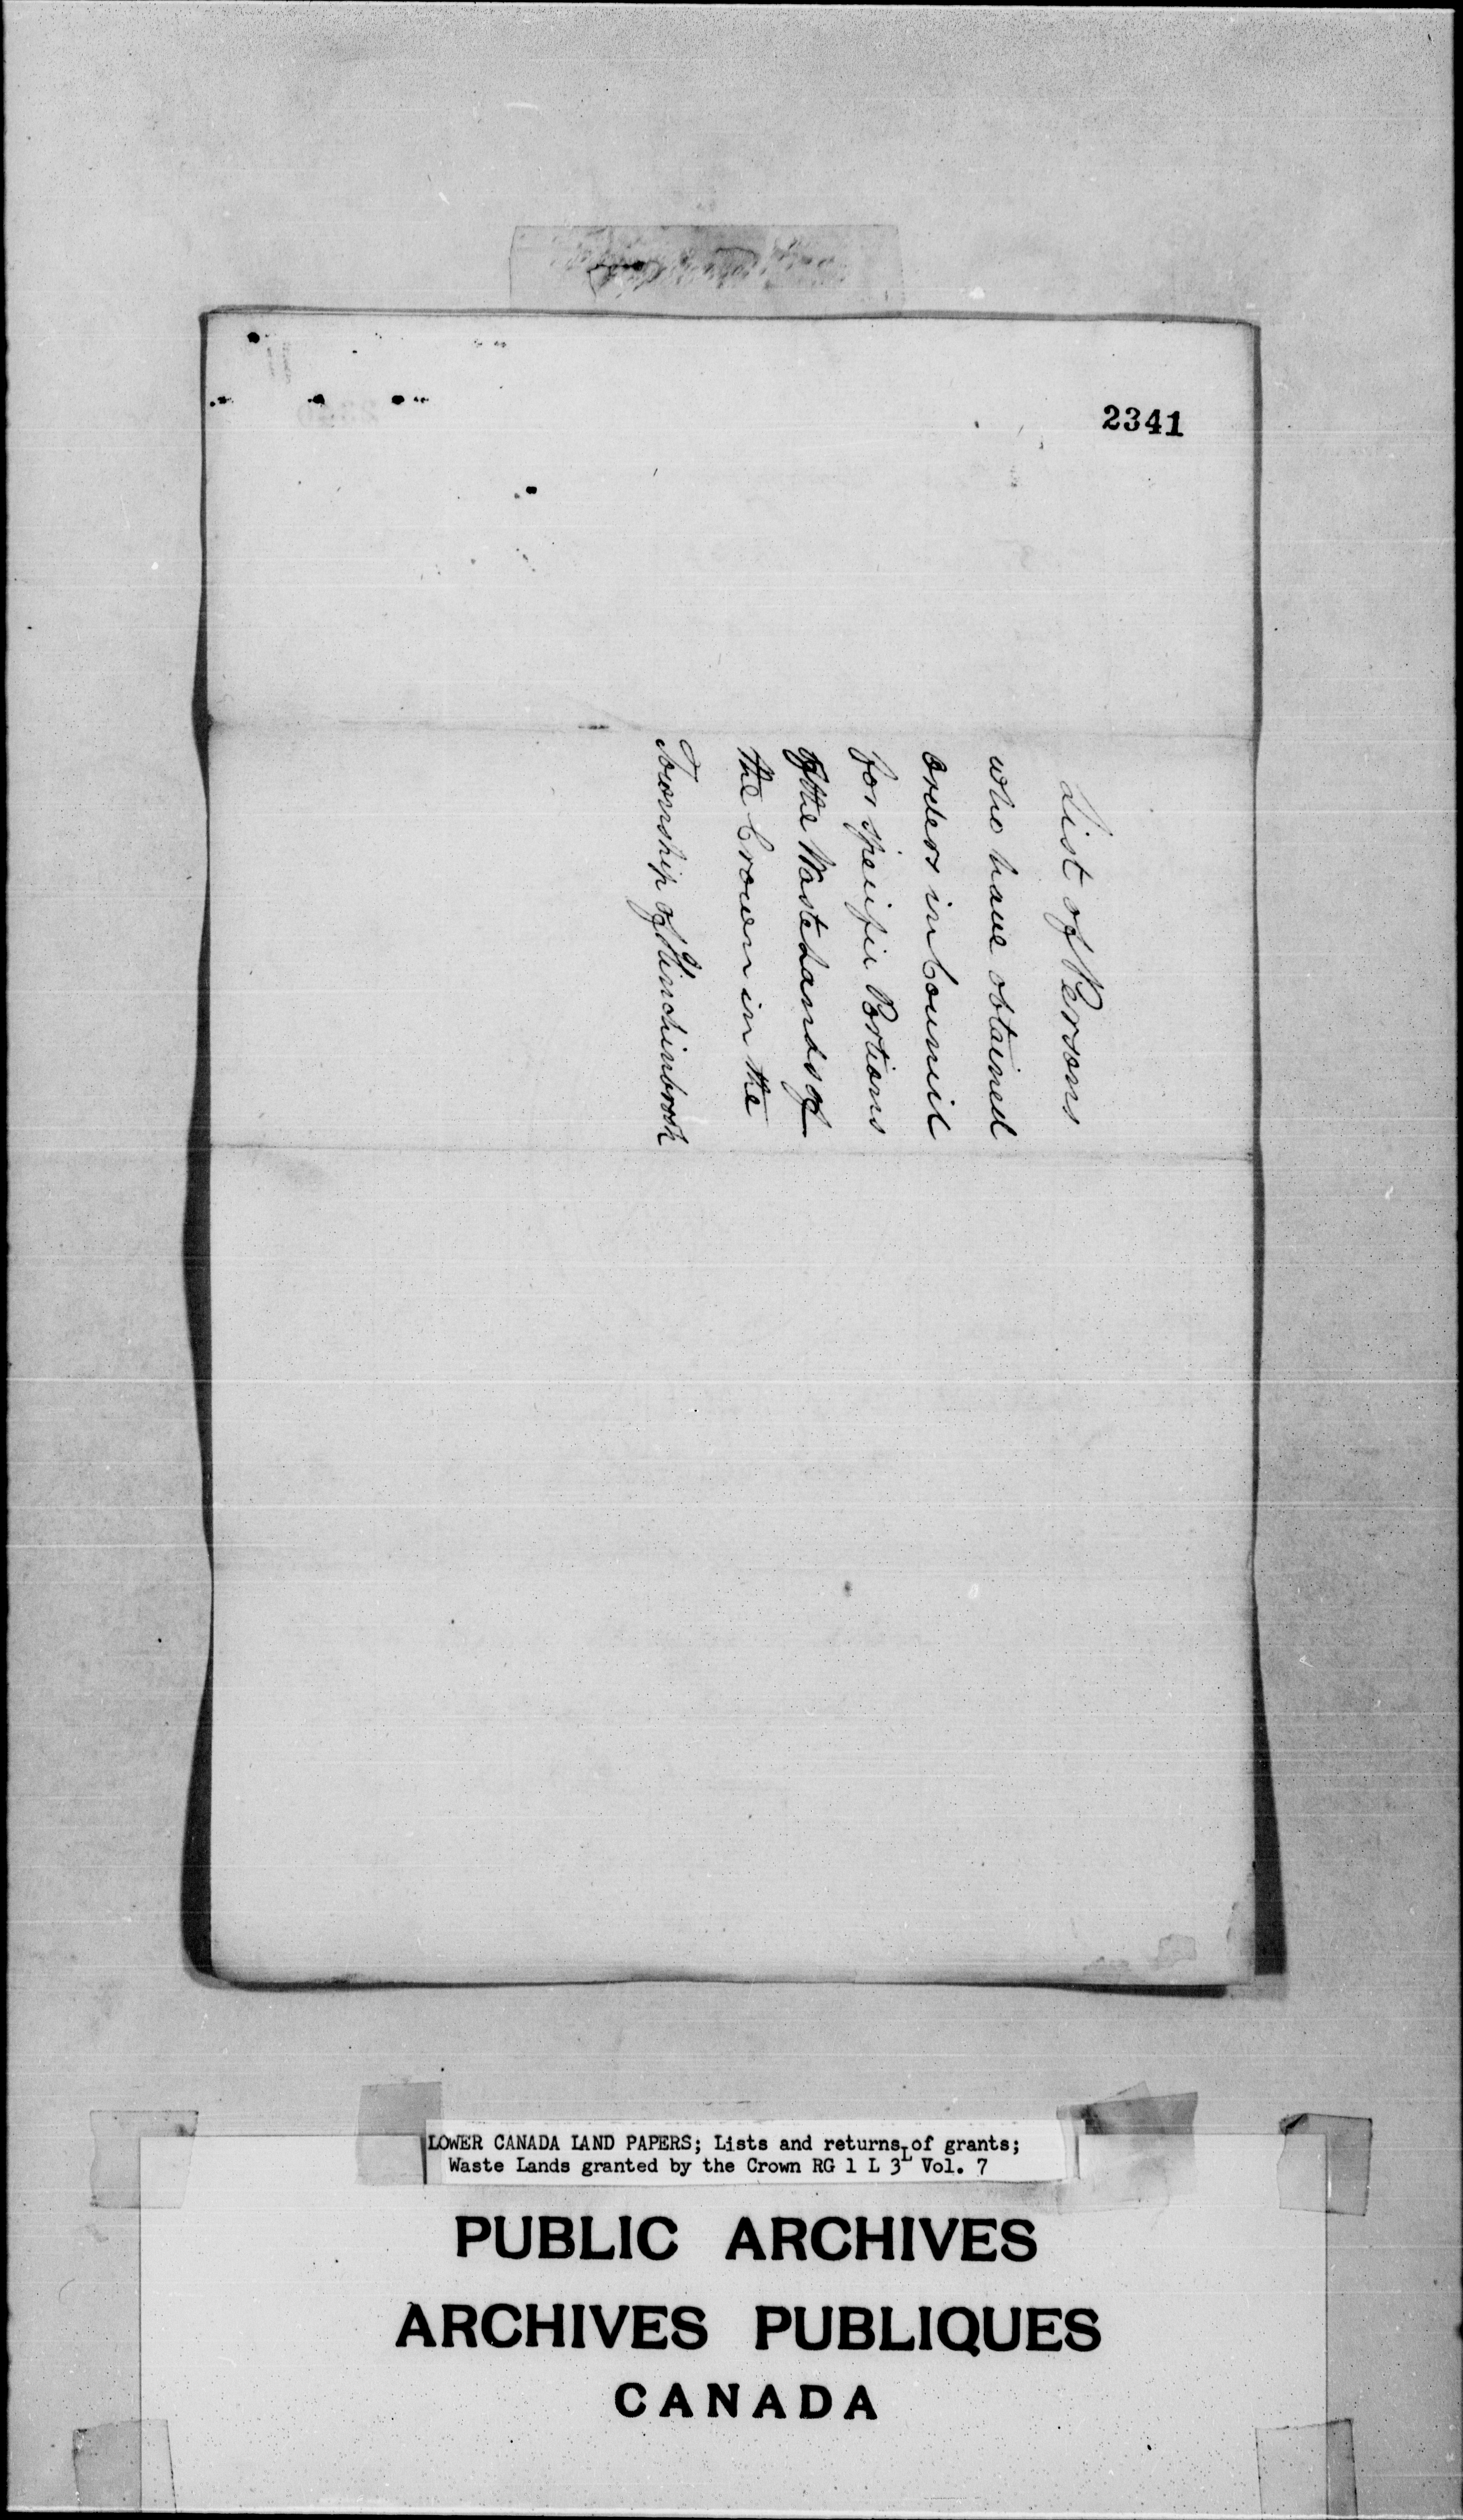 2341
List of Persons
who have obtained
orders in Council
for specific Portions
of the Waste Lands of
the Crown in the
Township of Hinchinbrook
LOWER CANADA LAND PAPERS; Lists and returns of grants;
Waste Lands granted by the Crown RG 1 L 3L Vol. 7
PUBLIC ARCHIVES
ARCHIVES PUBLIQUES
CANADA